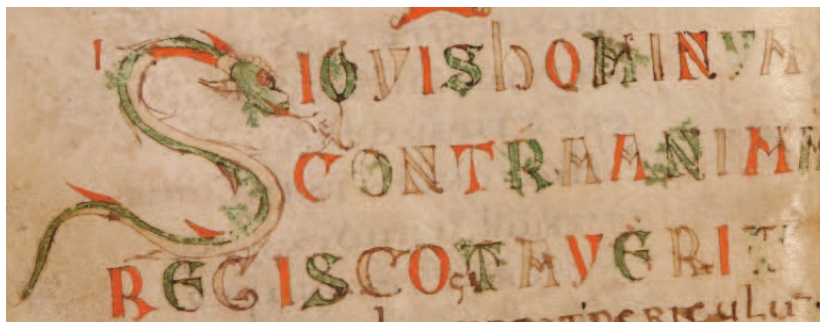 I SIQVIShOMINVM
CONTRAANIMAM
REGISCOgiTAVERIT